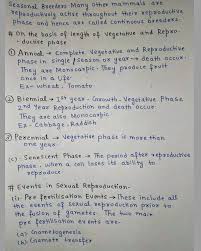 Seasonal Breeders Many other mammals are
reproductively active throughout their reproductive
phase and hence are called continuous breeders.
# On the basis of length of Vegetative and Repro-
-ductive phase
① Annual → Complete Vegetative and Reproductive
phase in single season or year → death occur.
They are Monocarpic. They produce fruit
once in a life
Ex - Wheat, Tomato
② Biennial → 1st year - Growth - Vegetative Phase
2nd Year Reproduction and death occur
They are also Monocarpic
Ex - Cabbage, Raddish
③ Perennial → Vegetative phase is more than
one year.
(c) Senescent Phase → The period after reproductive
phase, when a cell loses its ability to
reproduce
# Events in Sexual Reproduction -
(i) Pre fertilisation Events → These include all
the events of sexual reproduction prior to
the fusion of gametes. The two main
pre fertilisation events are:-
(a) Gametogenesis
(b) Gamete transfer